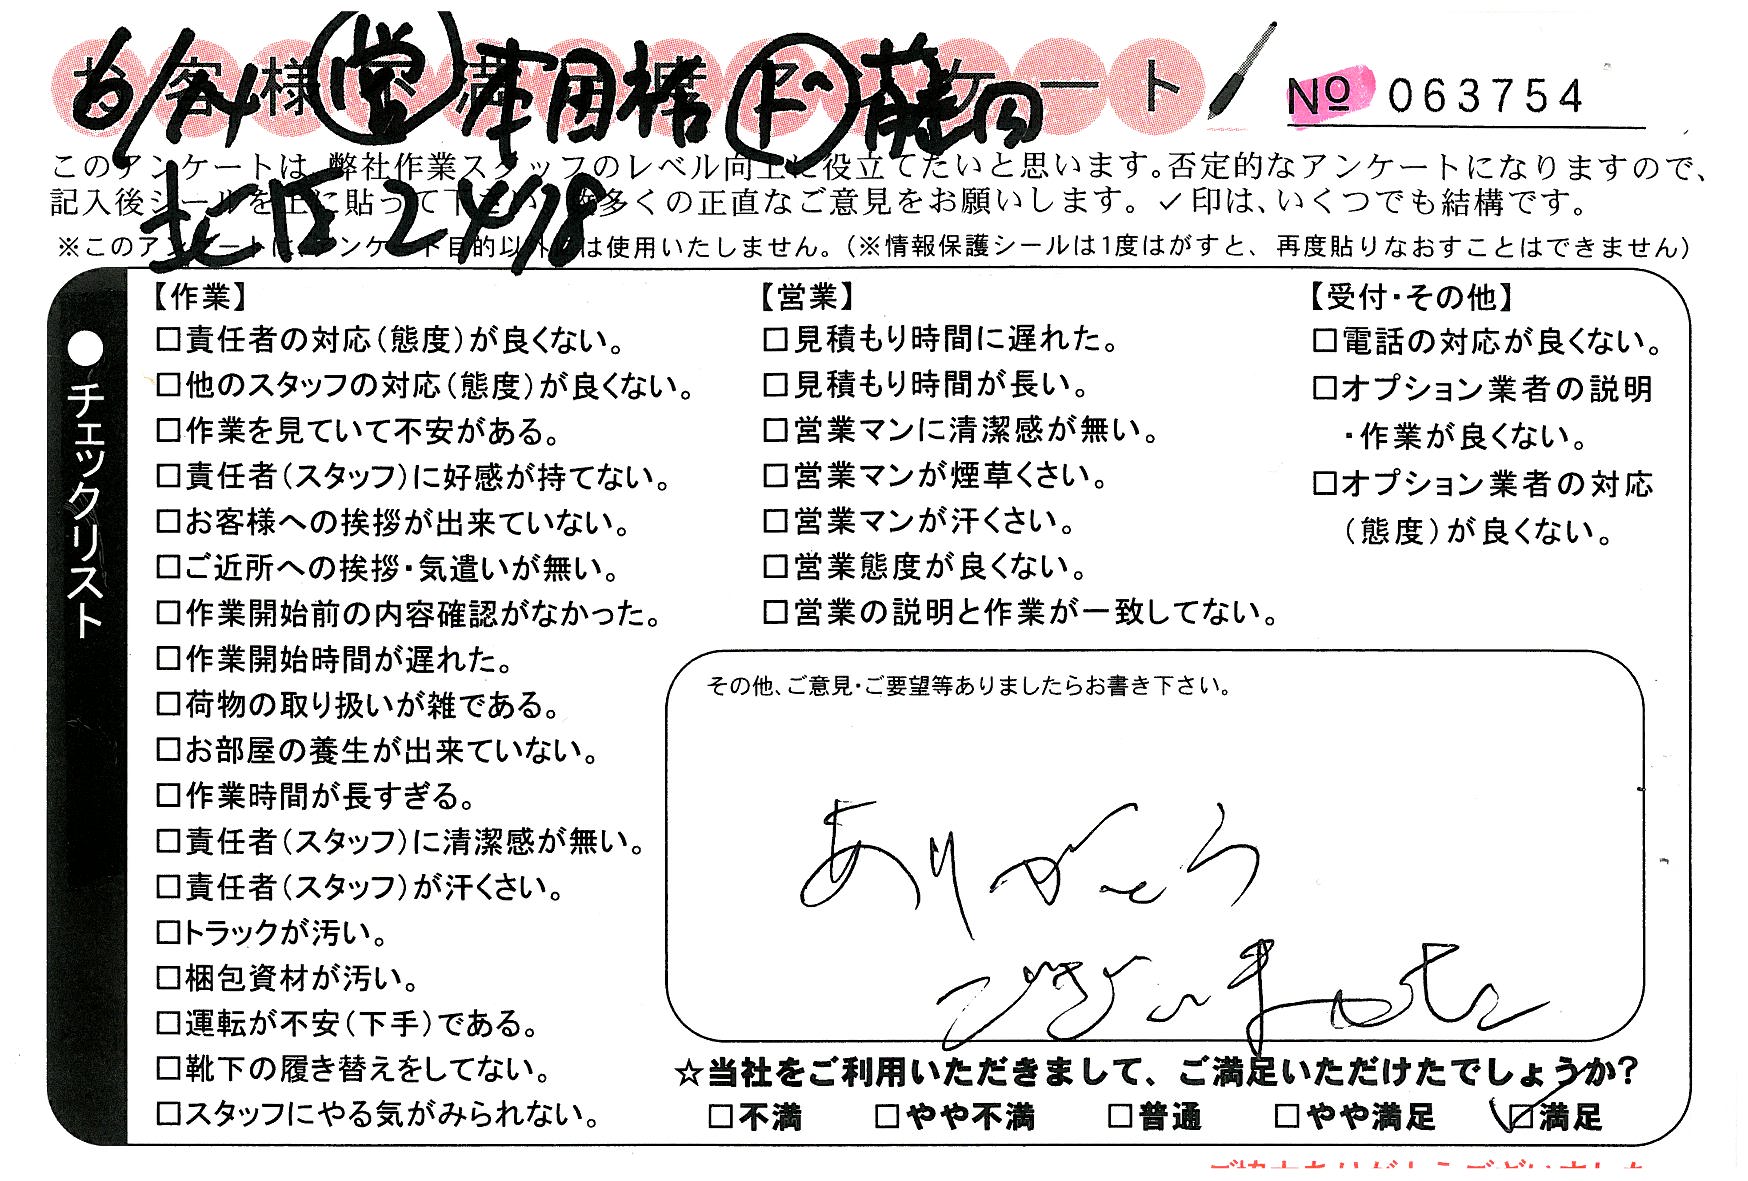 お客様不満足度アンケート
6/14 営 本田裕 ド 藤田
No 063754
このアンケートは、弊社作業スタッフのレベル向上に役立てたいと思います。否定的なアンケートになりますので、
記入後シールを上に貼って下さい。数多くの正直なご意見をお願いします。✓印は、いくつでも結構です。
北区 24/18
※このアンケートは、アンケート目的以外には使用いたしません。(※情報保護シールは1度はがすと、再度貼りなおすことはできません)
●チェックリスト
【作業】
□責任者の対応(態度)が良くない。
□他のスタッフの対応(態度)が良くない。
□作業を見ていて不安がある。
□責任者(スタッフ)に好感が持てない。
□お客様への挨拶が出来ていない。
□ご近所への挨拶・気遣いが無い。
□作業開始前の内容確認がなかった。
□作業開始時間が遅れた。
□荷物の取り扱いが雑である。
□お部屋の養生が出来ていない。
□作業時間が長すぎる。
□責任者(スタッフ)に清潔感が無い。
□責任者(スタッフ)が汗くさい。
□トラックが汚い。
□梱包資材が汚い。
□運転が不安(下手)である。
□靴下の履き替えをしてない。
□スタッフにやる気がみられない。
【営業】
□見積もり時間に遅れた。
□見積もり時間が長い。
□営業マンに清潔感が無い。
□営業マンが煙草くさい。
□営業マンが汗くさい。
□営業態度が良くない。
□営業の説明と作業が一致してない。
【受付・その他】
□電話の対応が良くない。
□オプション業者の説明
・作業が良くない。
□オプション業者の対応
(態度)が良くない。
その他、ご意見・ご要望等ありましたらお書き下さい。
ありがとう
ございました
☆当社をご利用いただきまして、ご満足いただけたでしょうか?
□不満 □やや不満 □普通 □やや満足 ☑満足
ご協力ありがとうございました